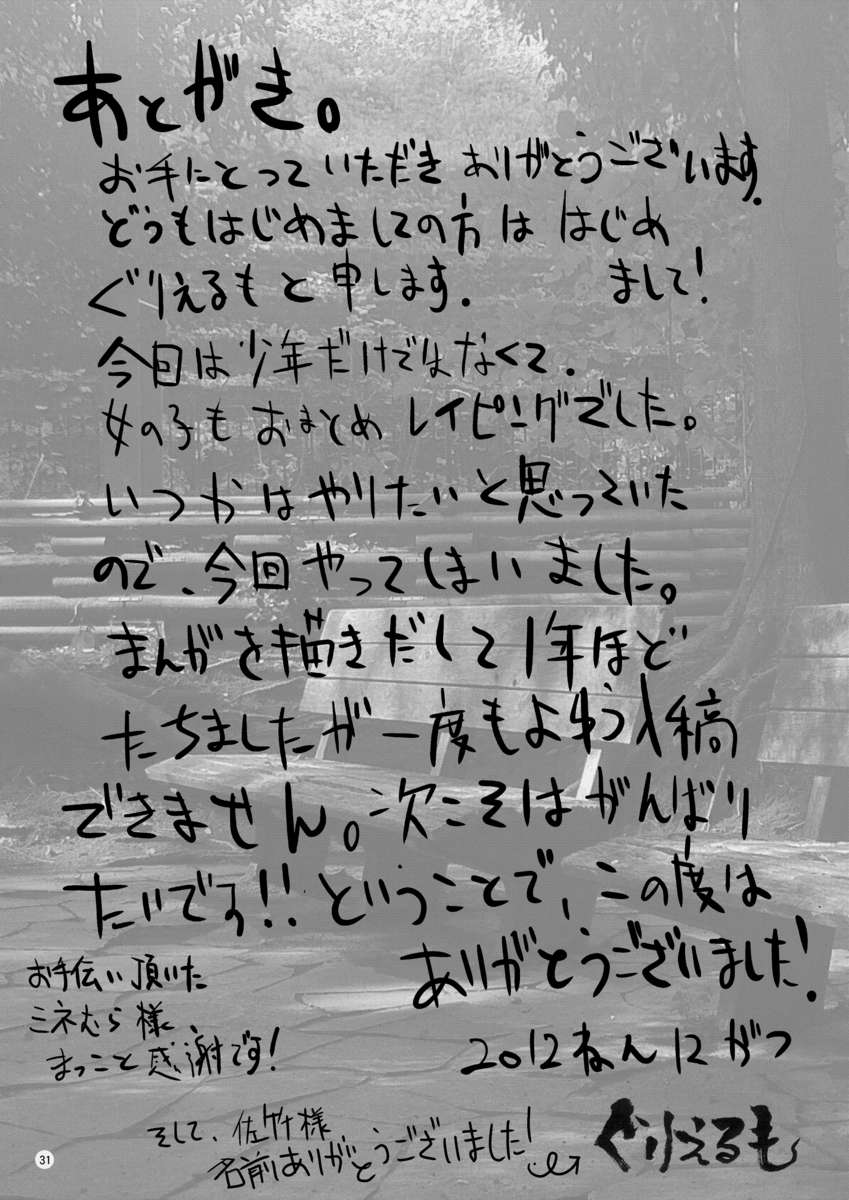 あとがき。
お手にとっていただき ありがとうございます。
どうもはじめましての方は はじめ
まして!
ぐりえるもと申します。
今回は少年だけではなくて、
女の子もおまとめ レイピングでした。
いつかはやりたいと思っていた
ので、今回やってしまいました。
まんがを描きだして1年ほど
たちましたが一度もよゆう入稿
できません。次こそはがんばり
たいです!!ということで、この度は
ありがとうございました!
お手伝い頂いた
ミネむら様、
まっこと感謝です!
2012ねんにがつ
そして、佐竹様
名前ありがとうございました!
ぐりえるも
31